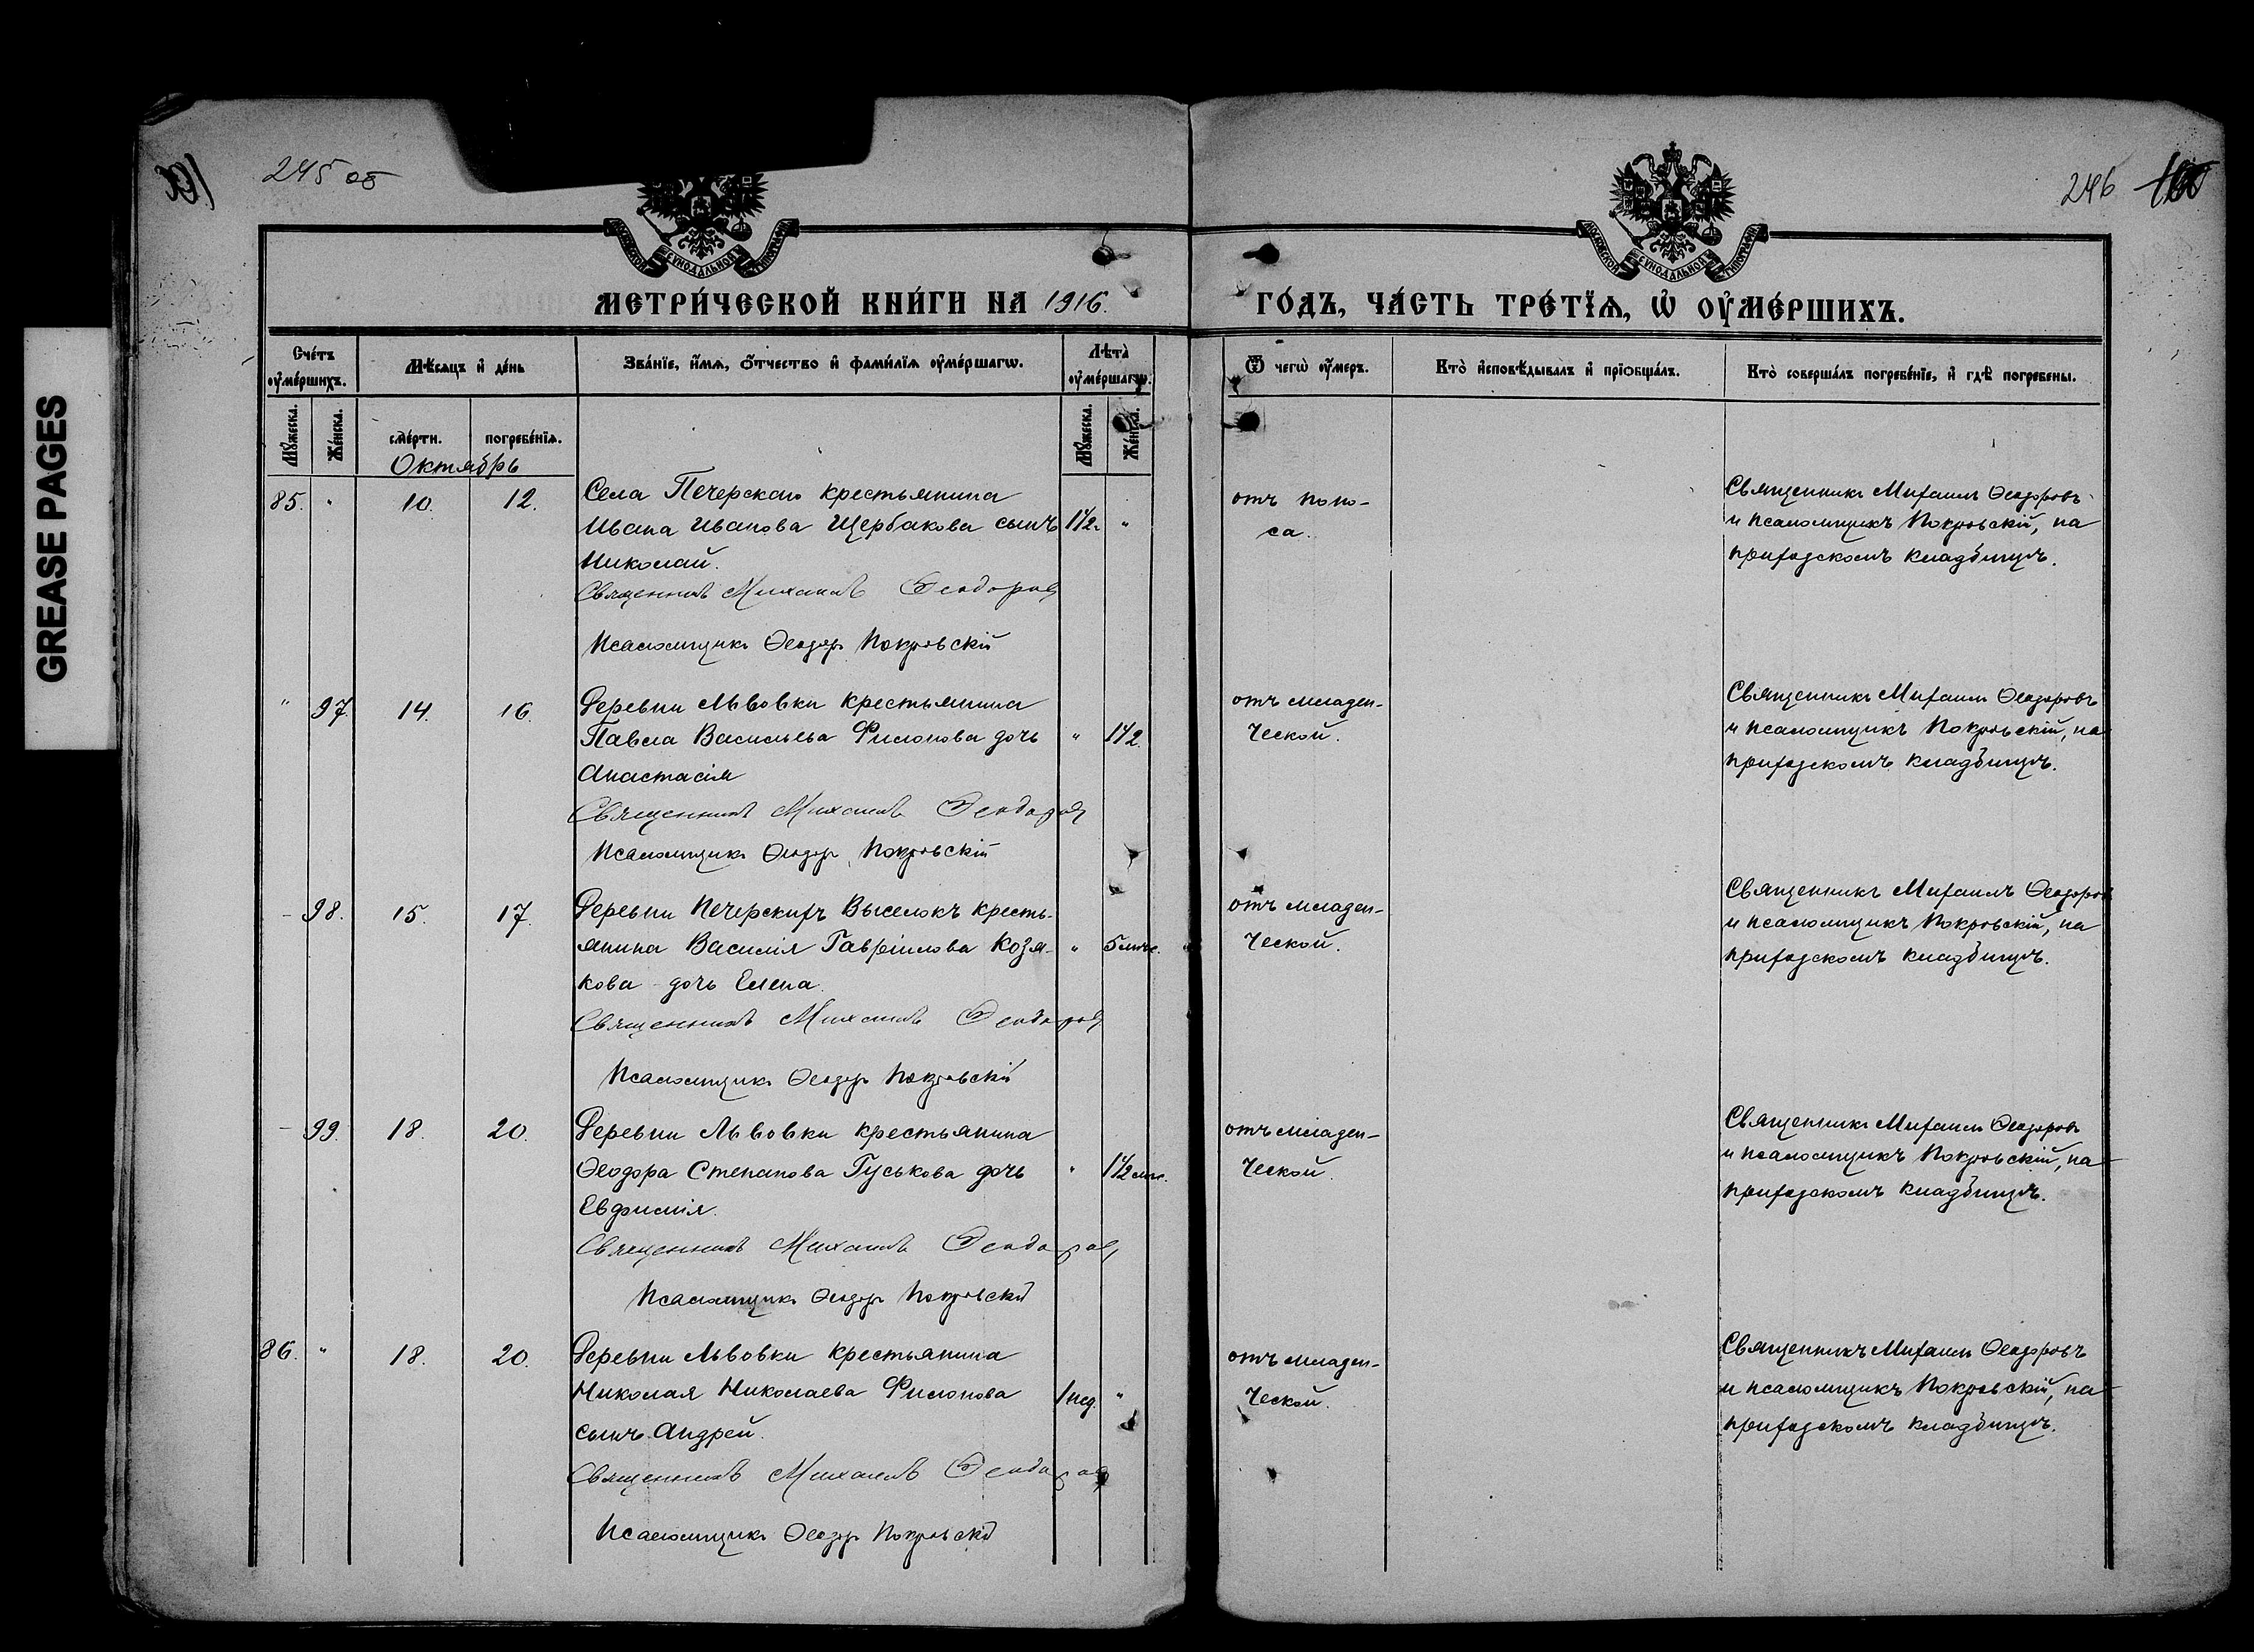 GREASE PAGES
245 об
246
МЕТРИ́ЧЕСКОЙ КНИ́ГИ НА 1916.
ГО́ДЪ, ЧА́СТЬ ТРЕ́ТЇѦ, Ѡ҆ ОУ҆МЕ́РШИХЪ.
Сче́тъ оу҆ме́ршихъ.
Мѣ́сяцъ и҆ де́нь
Зва́нїе, и҆́мѧ, ѻ҆́тчество и҆ фами́лїѧ оу҆ме́ршагѡ.
Лѣ́та оу҆ме́ршагѡ.
Ѿ чегѡ̀ оу҆́меръ.
Кто̀ и҆сповѣ́дывалъ и҆ прїѻбща́лъ.
Кто̀ соверша́лъ погребе́нїе, и҆ гдѣ̀ погребены.
Мꙋ́жеска.
Же́нска.
сме́рти.
погребе́нїѧ.
Мꙋ́жеска.
Же́нска.
Октябрь
85. " 10. 12. Села Печерскаго крестьянина
Ивана Иванова Щербакова сынъ 1 1/2 г "
Николай.
Священникъ Михаилъ Ѳеодоровъ
Псаломщикъ Ѳеодоръ Покровскій
отъ поно-
са.
Священникъ Михаилъ Ѳеодоровъ
и псаломщикъ Покровскій, на
приходскомъ кладбищѣ.
" 97. 14. 16. Деревни Львовки крестьянина
Павла Васильева Филонова дочь " 1 1/2.
Анастасія
Священникъ Михаилъ Ѳеодоровъ
Псаломщикъ Ѳеодоръ Покровскій
отъ младен-
ческой.
Священникъ Михаилъ Ѳеодоровъ
и псаломщикъ Покровскій, на
приходскомъ кладбищѣ.
- 98. 15. 17. Деревни Печерскихъ Выселокъ кресть-
янина Василія Гавріилова Козя- " 5 мѣс.
кова - дочь Елена.
Священникъ Михаилъ Ѳеодоровъ
Псаломщикъ Ѳеодоръ Покровскій
отъ младен-
ческой.
Священникъ Михаилъ Ѳеодоровъ
и псаломщикъ Покровскій, на
приходскомъ кладбищѣ.
- 99. 18. 20. Деревни Львовки крестьянина
Ѳеодора Степанова Гуськова дочь " 1 1/2 мѣс.
Евфимія.
Священникъ Михаилъ Ѳеодоровъ
Псаломщикъ Ѳеодоръ Покровскій
отъ младен-
ческой.
Священникъ Михаилъ Ѳеодоровъ
и псаломщикъ Покровскій, на
приходскомъ кладбищѣ.
86. " 18. 20. Деревни Львовки крестьянина
Николая Николаева Филонова 1 нед. "
сынъ Андрей.
Священникъ Михаилъ Ѳеодоровъ
Псаломщикъ Ѳеодоръ Покровскій
отъ младен-
ческой.
Священникъ Михаилъ Ѳеодоровъ
и псаломщикъ Покровскій, на
приходскомъ кладбищѣ.